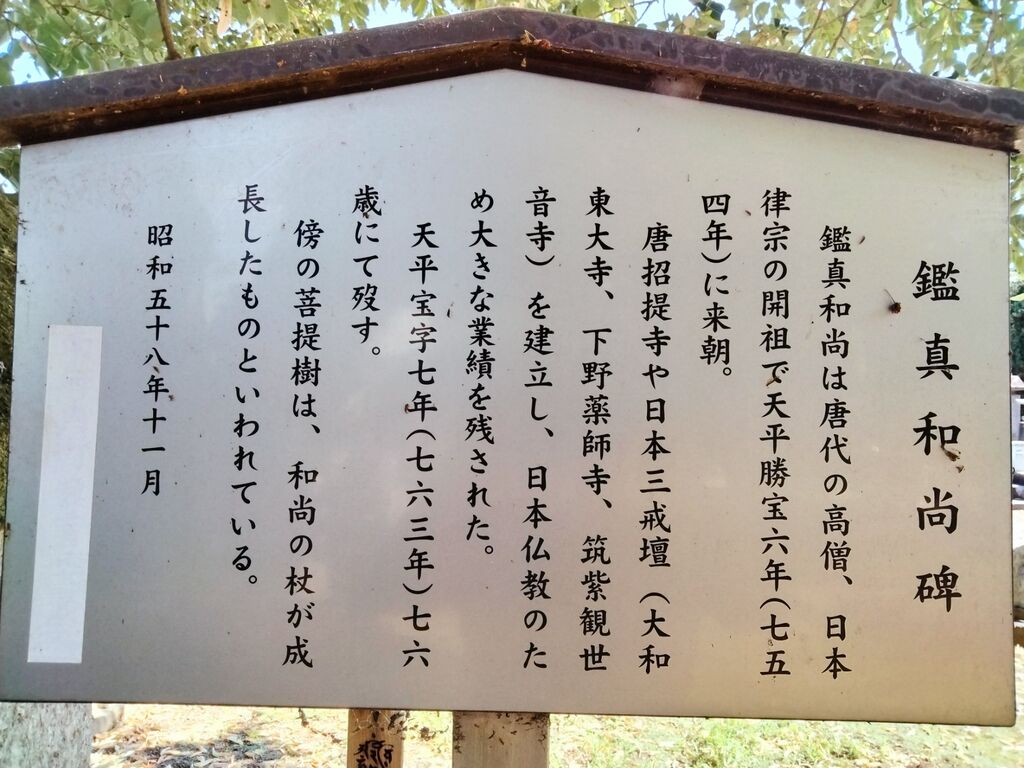 鑑真和尚碑
鑑真和尚は唐代の高僧、日本
律宗の開祖で天平勝宝六年(七五
四年)に来朝。
唐招提寺や日本三戒壇(大和
東大寺、下野薬師寺、筑紫観世
音寺)を建立し、日本仏教のた
め大きな業績を残された。
天平宝字七年(七六三年)七六
歳にて歿す。
傍の菩提樹は、和尚の杖が成
長したものといわれている。
昭和五十八年十一月